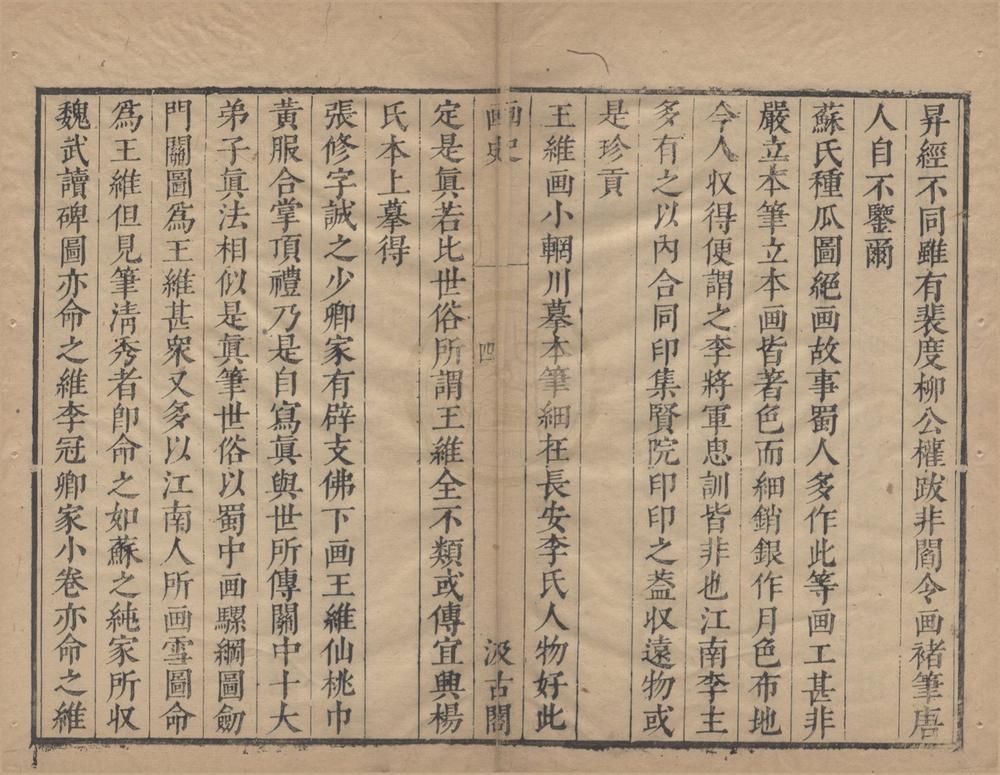 昇經不同雖有裴度柳公權跋非閻令画褚筆唐
人自不鑒爾
蘇氏種瓜圖絕画故事蜀人多作此等画工甚非
嚴立本筆立本画皆著色而細銷銀作月色布地
今人収得便謂之李將軍思訓皆非也江南李主
多有之以內合同印集賢院印印之葢収遠物或
是珍貢
王維画小輞川摹本筆細在長安李氏人物好此
画史 四 汲古閣
定是眞若比世俗所謂王維全不類或傳宜興楊
氏本上摹得
張修字誠之少卿家有辟支佛下画王維仙桃巾
黃服合掌頂禮乃是自寫眞與世所傳關中十大
弟子眞法相似是眞筆世俗以蜀中画騾綱圖劒
門關圖爲王維甚衆又多以江南人所画雪圖命
爲王維但見筆清秀者卽命之如蘇之純家所収
魏武讀碑圖亦命之維李冠卿家小卷亦命之維